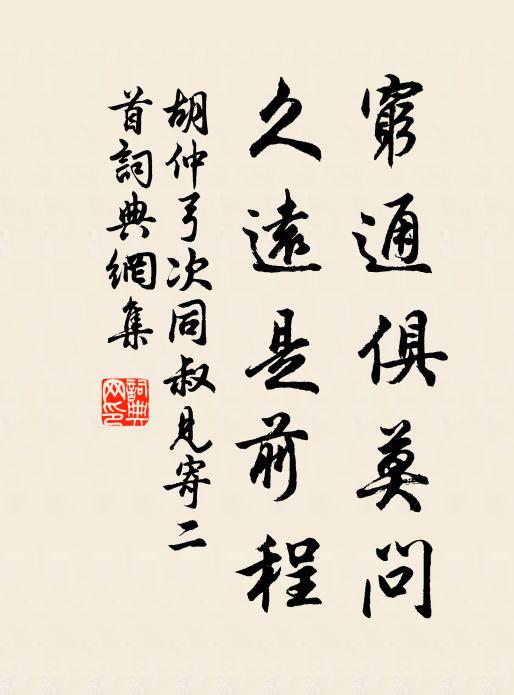 窮通俱莫問
久遠是前程
胡仲弓次同叔見寄二
首詞典網集
詞典
网印